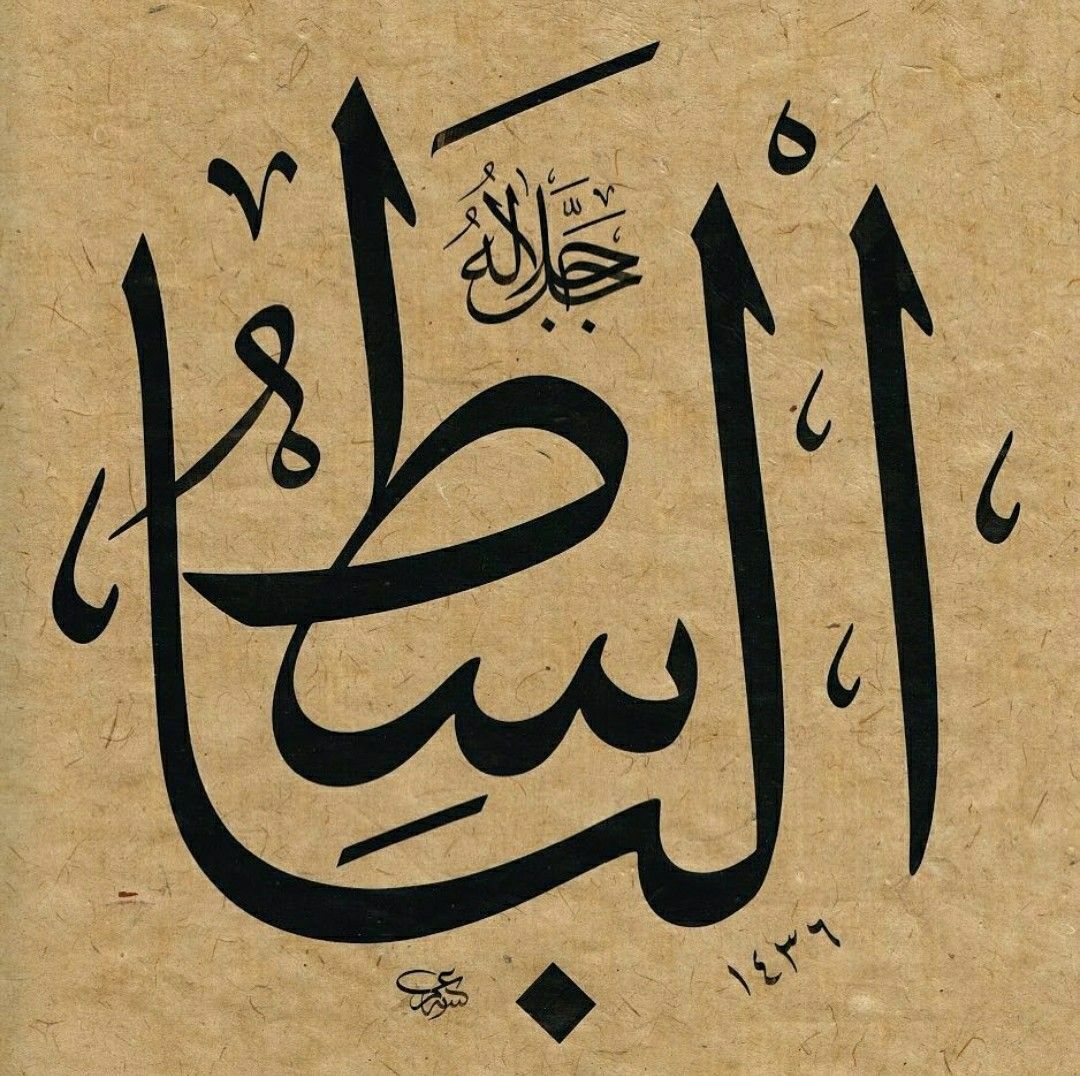 الْبَاسِطُ
جَلَّ جَلَالُهُ
١٤٣٦